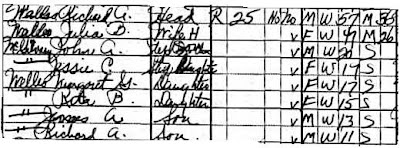 Wallee Richard A. Head R 25 No No M W 57 M 36
Wallee Julia D. Wife H v F W 47 M 26
John A. Step Son v M W 20 S
" Jessie C. Step Daughter v F W 19 S
Wallee Margaret G. Daughter v F W 17 S
" Rita B. Daughter v F W 15 S
" James A. Son v M W 13 S
" Richard A. Son v M W 11 S